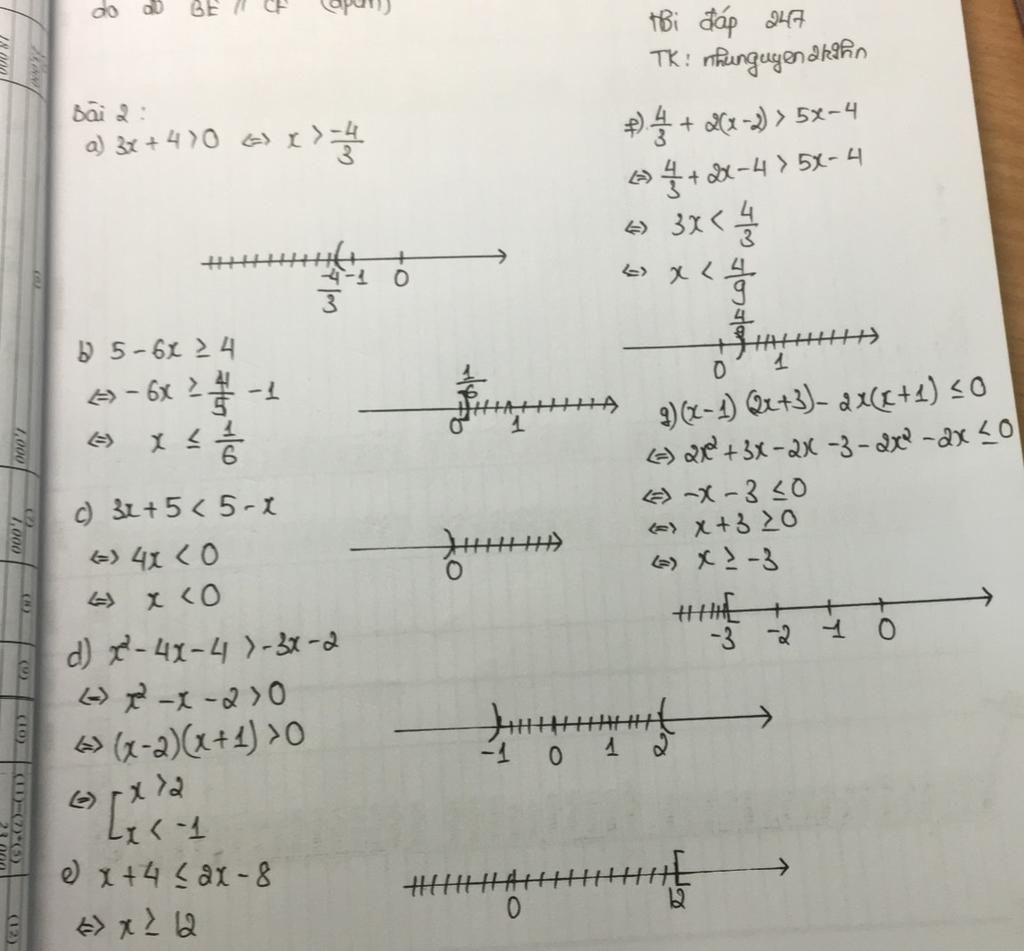 do đó BE // CF (đpcm)
Hỏi đáp 247
TK: nhunguyen2k9hn
Bài 2:
a) 3x + 4 > 0 ⇔ x > -4/3
-4/3 -1 0
b) 5 - 6x ≥ 4
⇔ -6x ≥ 4/5 - 1
⇔ x ≤ 1/6
1/6
0 1
c) 3x + 5 < 5 - x
⇔ 4x < 0
⇔ x < 0
0
d) x² - 4x - 4 > -3x - 2
⇔ x² - x - 2 > 0
⇔ (x-2)(x+1) > 0
⇔ [ x > 2
x < -1
-1 0 1 2
e) x + 4 ≤ 2x - 8
⇔ x ≥ 12
0 12
f) 4/3 + 2(x-2) > 5x - 4
⇔ 4/3 + 2x - 4 > 5x - 4
⇔ 3x < 4/3
⇔ x < 4/9
4/9
0 1
g) (x-1)(2x+3) - 2x(x+1) ≤ 0
⇔ 2x² + 3x - 2x - 3 - 2x² - 2x ≤ 0
⇔ -x - 3 ≤ 0
⇔ x + 3 ≥ 0
⇔ x ≥ -3
-3 -2 -1 0
1,000
1,000
(8)
(9)
(10)
(12)